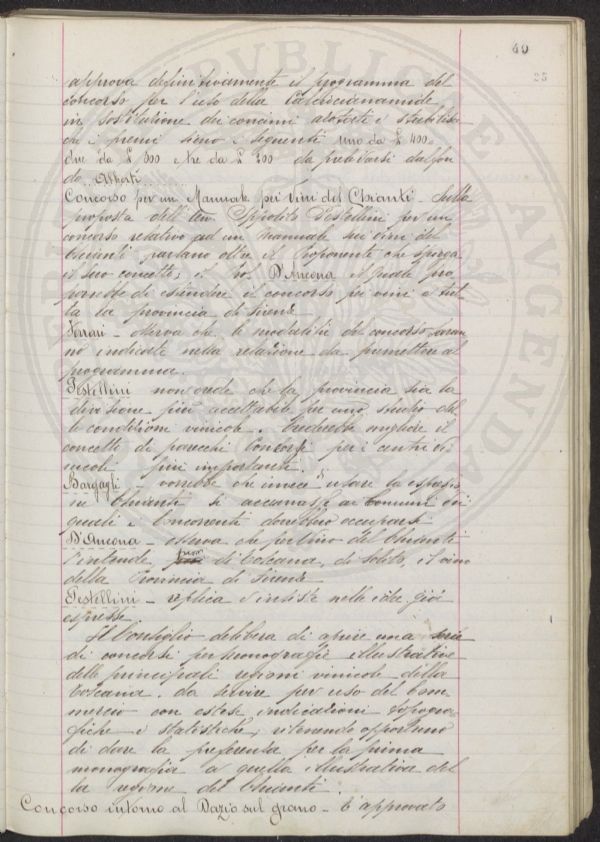 40
25
approva definitivamente il programma del
concorso per l'uso della Calciocianamide
in sostituzione dei concimi azotati e stabilisce
che i premi sieno i seguenti uno da £ 400.
due da £ 300 e tre da £ 200 da prelevarsi dal fon
do Alberti
Concorso per un Manuale pei Vini del Chianti. Sulla
proposta dell' Ippolito Pestellini per un
concorso relativo ad un Manuale sui vini del
Chianti parlano oltre il proponente che spiega
il suo concetto, il D'Ancona il quale pro
porrebbe di estendere il concorso pei vini a tut
ta la provincia di Firenze
Ferrari - osserva che le modalità del concorso saran
no indicate nella relazione da premettere al
programma.
Pestellini non crede che la provincia sia la
divisione più accettabile per uno studio del
le condizioni vinicole. Crederebbe migliore il
concetto di parecchi Concorsi per i centri vi
nicoli più importanti.
Bargagli - vorrebbe che invece d'usare la espressio
ne Chianti si accennasse ai Comuni dei
quali i Concorrenti dovrebbero occuparsi
D'Ancona - osserva che per vino del Chianti
s'intende fuori di Toscana, di solito, il vino
della Provincia di Firenze
Pestellini - replica e insiste nelle idee già
espresse.
Il Consiglio delibera di aprire una serie
di concorsi per monografie illustrative
delle principali regioni vinicole della
Toscana, da servire per uso del Com
mercio con estese indicazioni topogra
fiche e statistiche, ritenendo opportuno
di dare la preferenza per la prima
monografia a quella illustrativa del
la regione del Chianti.
Concorso intorno al Dazio sul grano - È approvato